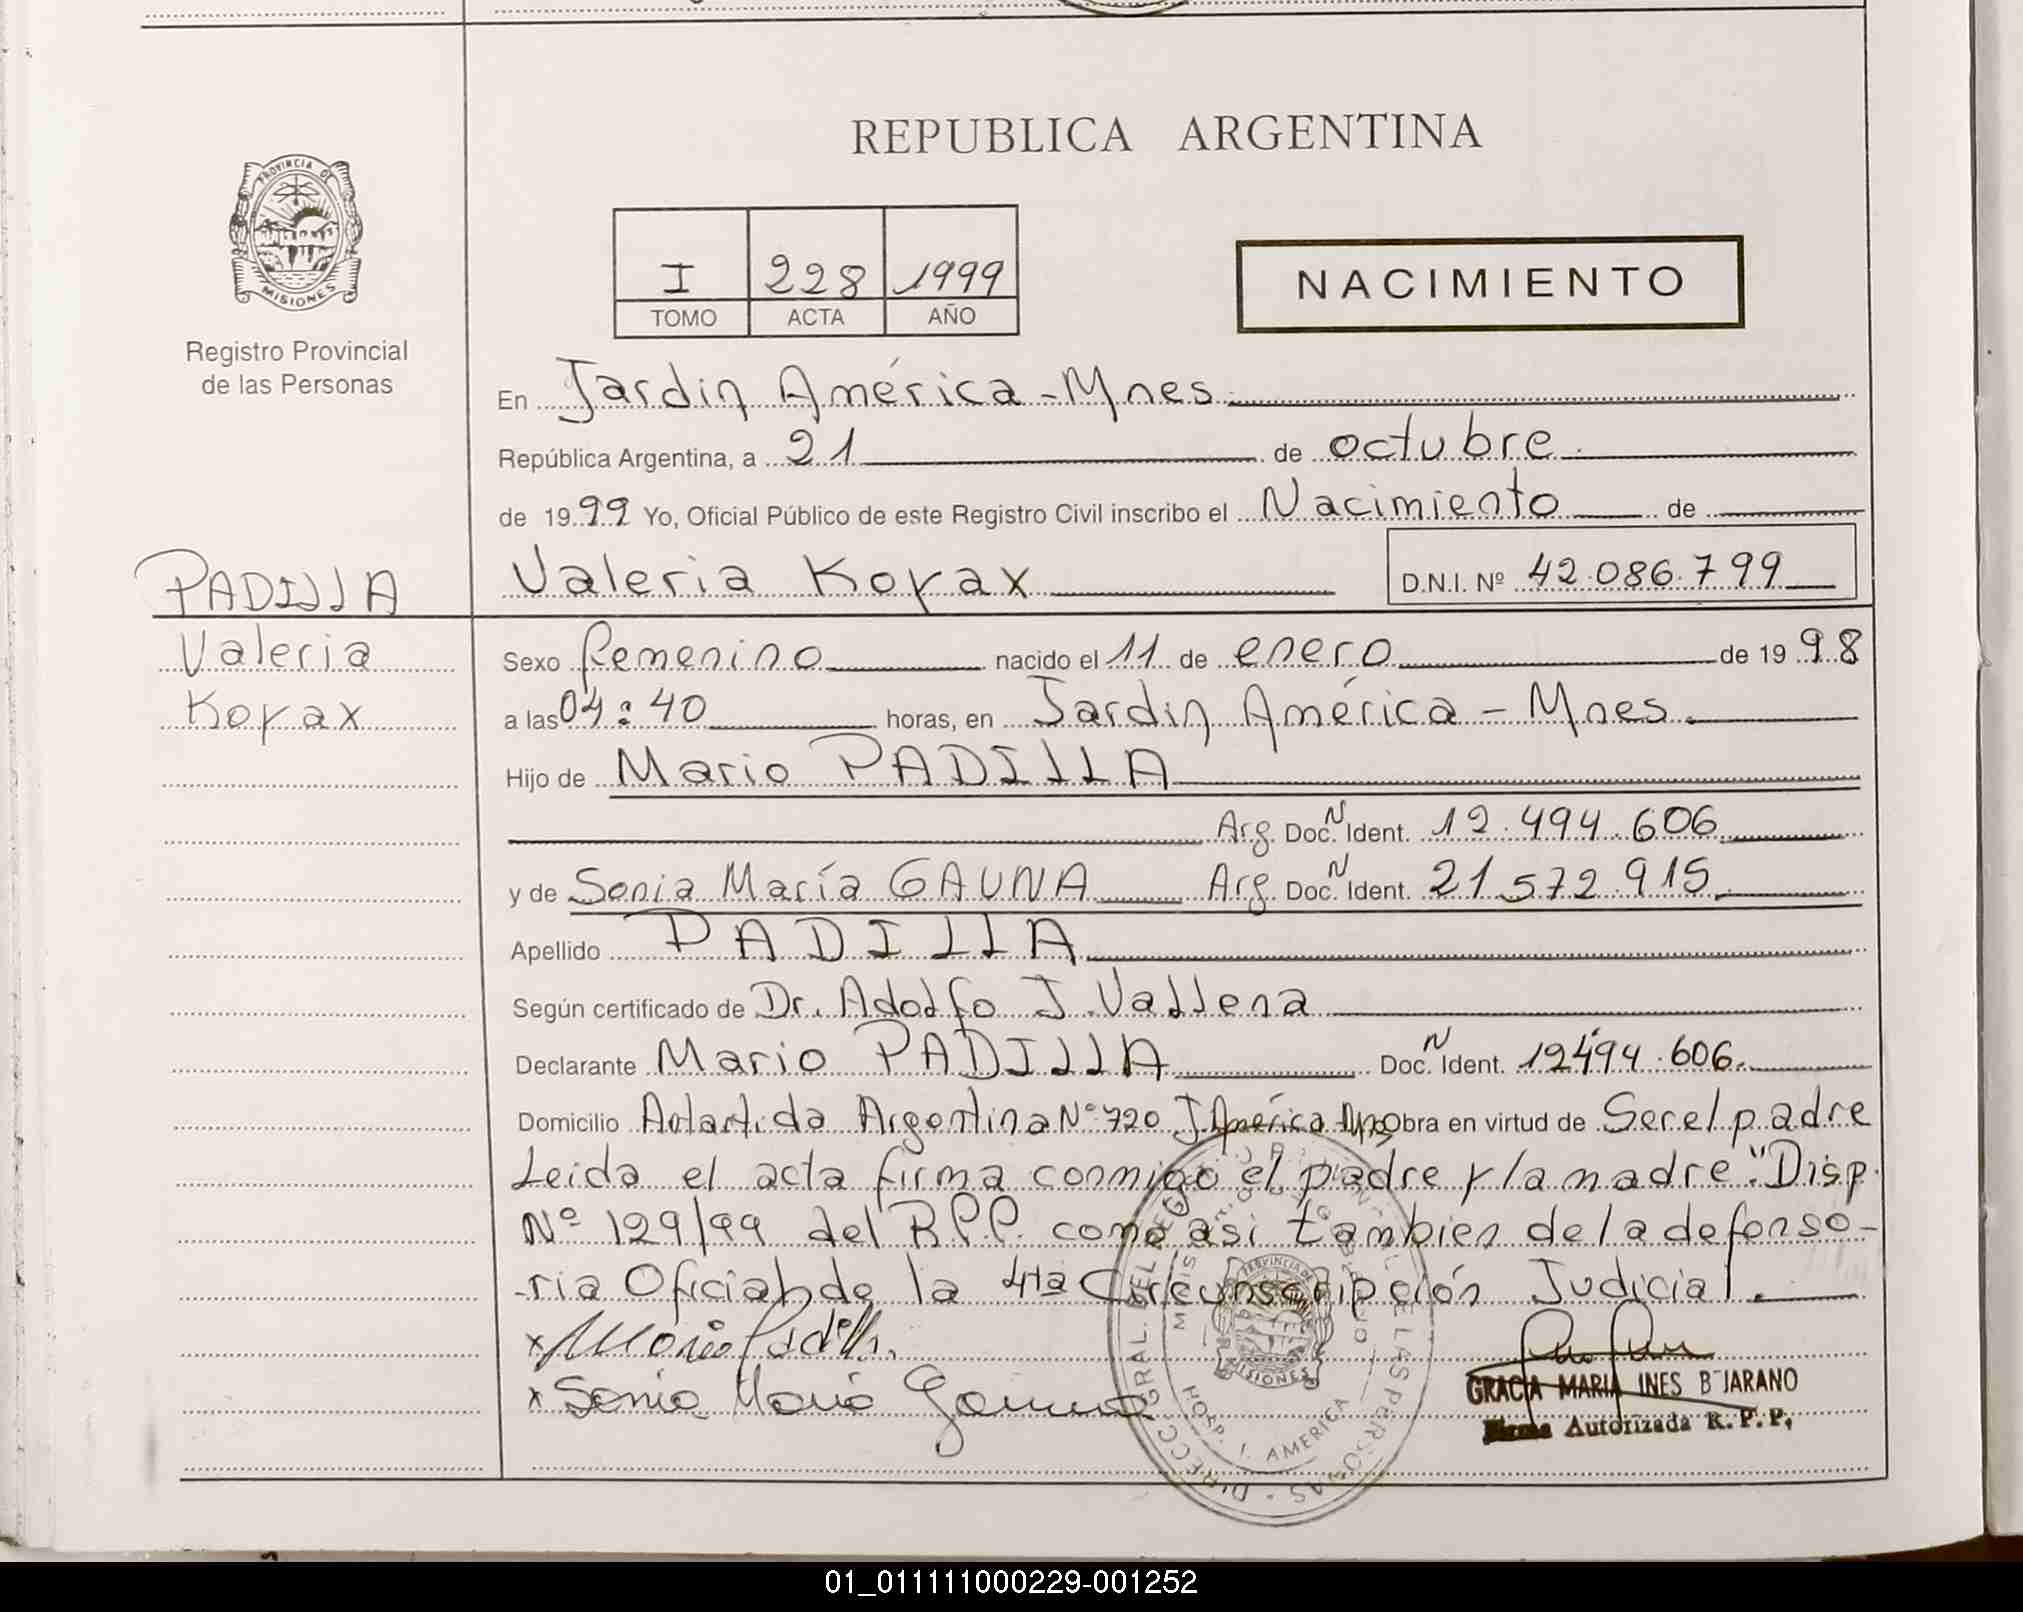 REPUBLICA ARGENTINA
PROVINCIA DE
MISIONES
Registro Provincial
de las Personas
I 228 1999
TOMO ACTA AÑO
NACIMIENTO
En Jardin América - Mnes.
República Argentina, a 21 de octubre.
de 1999 Yo, Oficial Público de este Registro Civil inscribo el Nacimiento de
PADILLA
Valeria Korax
Valeria Korax
D.N.I. Nº 42.086.799
Sexo femenino nacido el 11 de enero de 1998
a las 04:40 horas, en Jardin América - Mnes.
Hijo de Mario PADILLA
Arg. Doc. N Ident. 12.494.606
y de Sonia María GAUNA Arg. Doc. N Ident. 21.572.915
Apellido PADILLA
Según certificado de Dr. Adolfo J. Vallena
Declarante Mario PADILLA Doc. N Ident. 12.494.606.
Domicilio Antartida Argentina Nº 720 J. América Mns Obra en virtud de Ser el padre
Leida el acta firma conmigo el padre y la madre. "Disp.
Nº 129/99 del R.P.P. como asi tambien de la defenso-
ria Oficial de la 4ta Circunscripción Judicial.
x Mario Padilla
x Sonia María Gauna
GRACIA MARIA INES B JARANO
Firma Autorizada R.P.P.
PROVINCIA DE
MISIONES
HOSP. J. AMERICA
DIRECC. GRAL. DEL REG. DE LAS PERSONAS
01_011111000229-001252